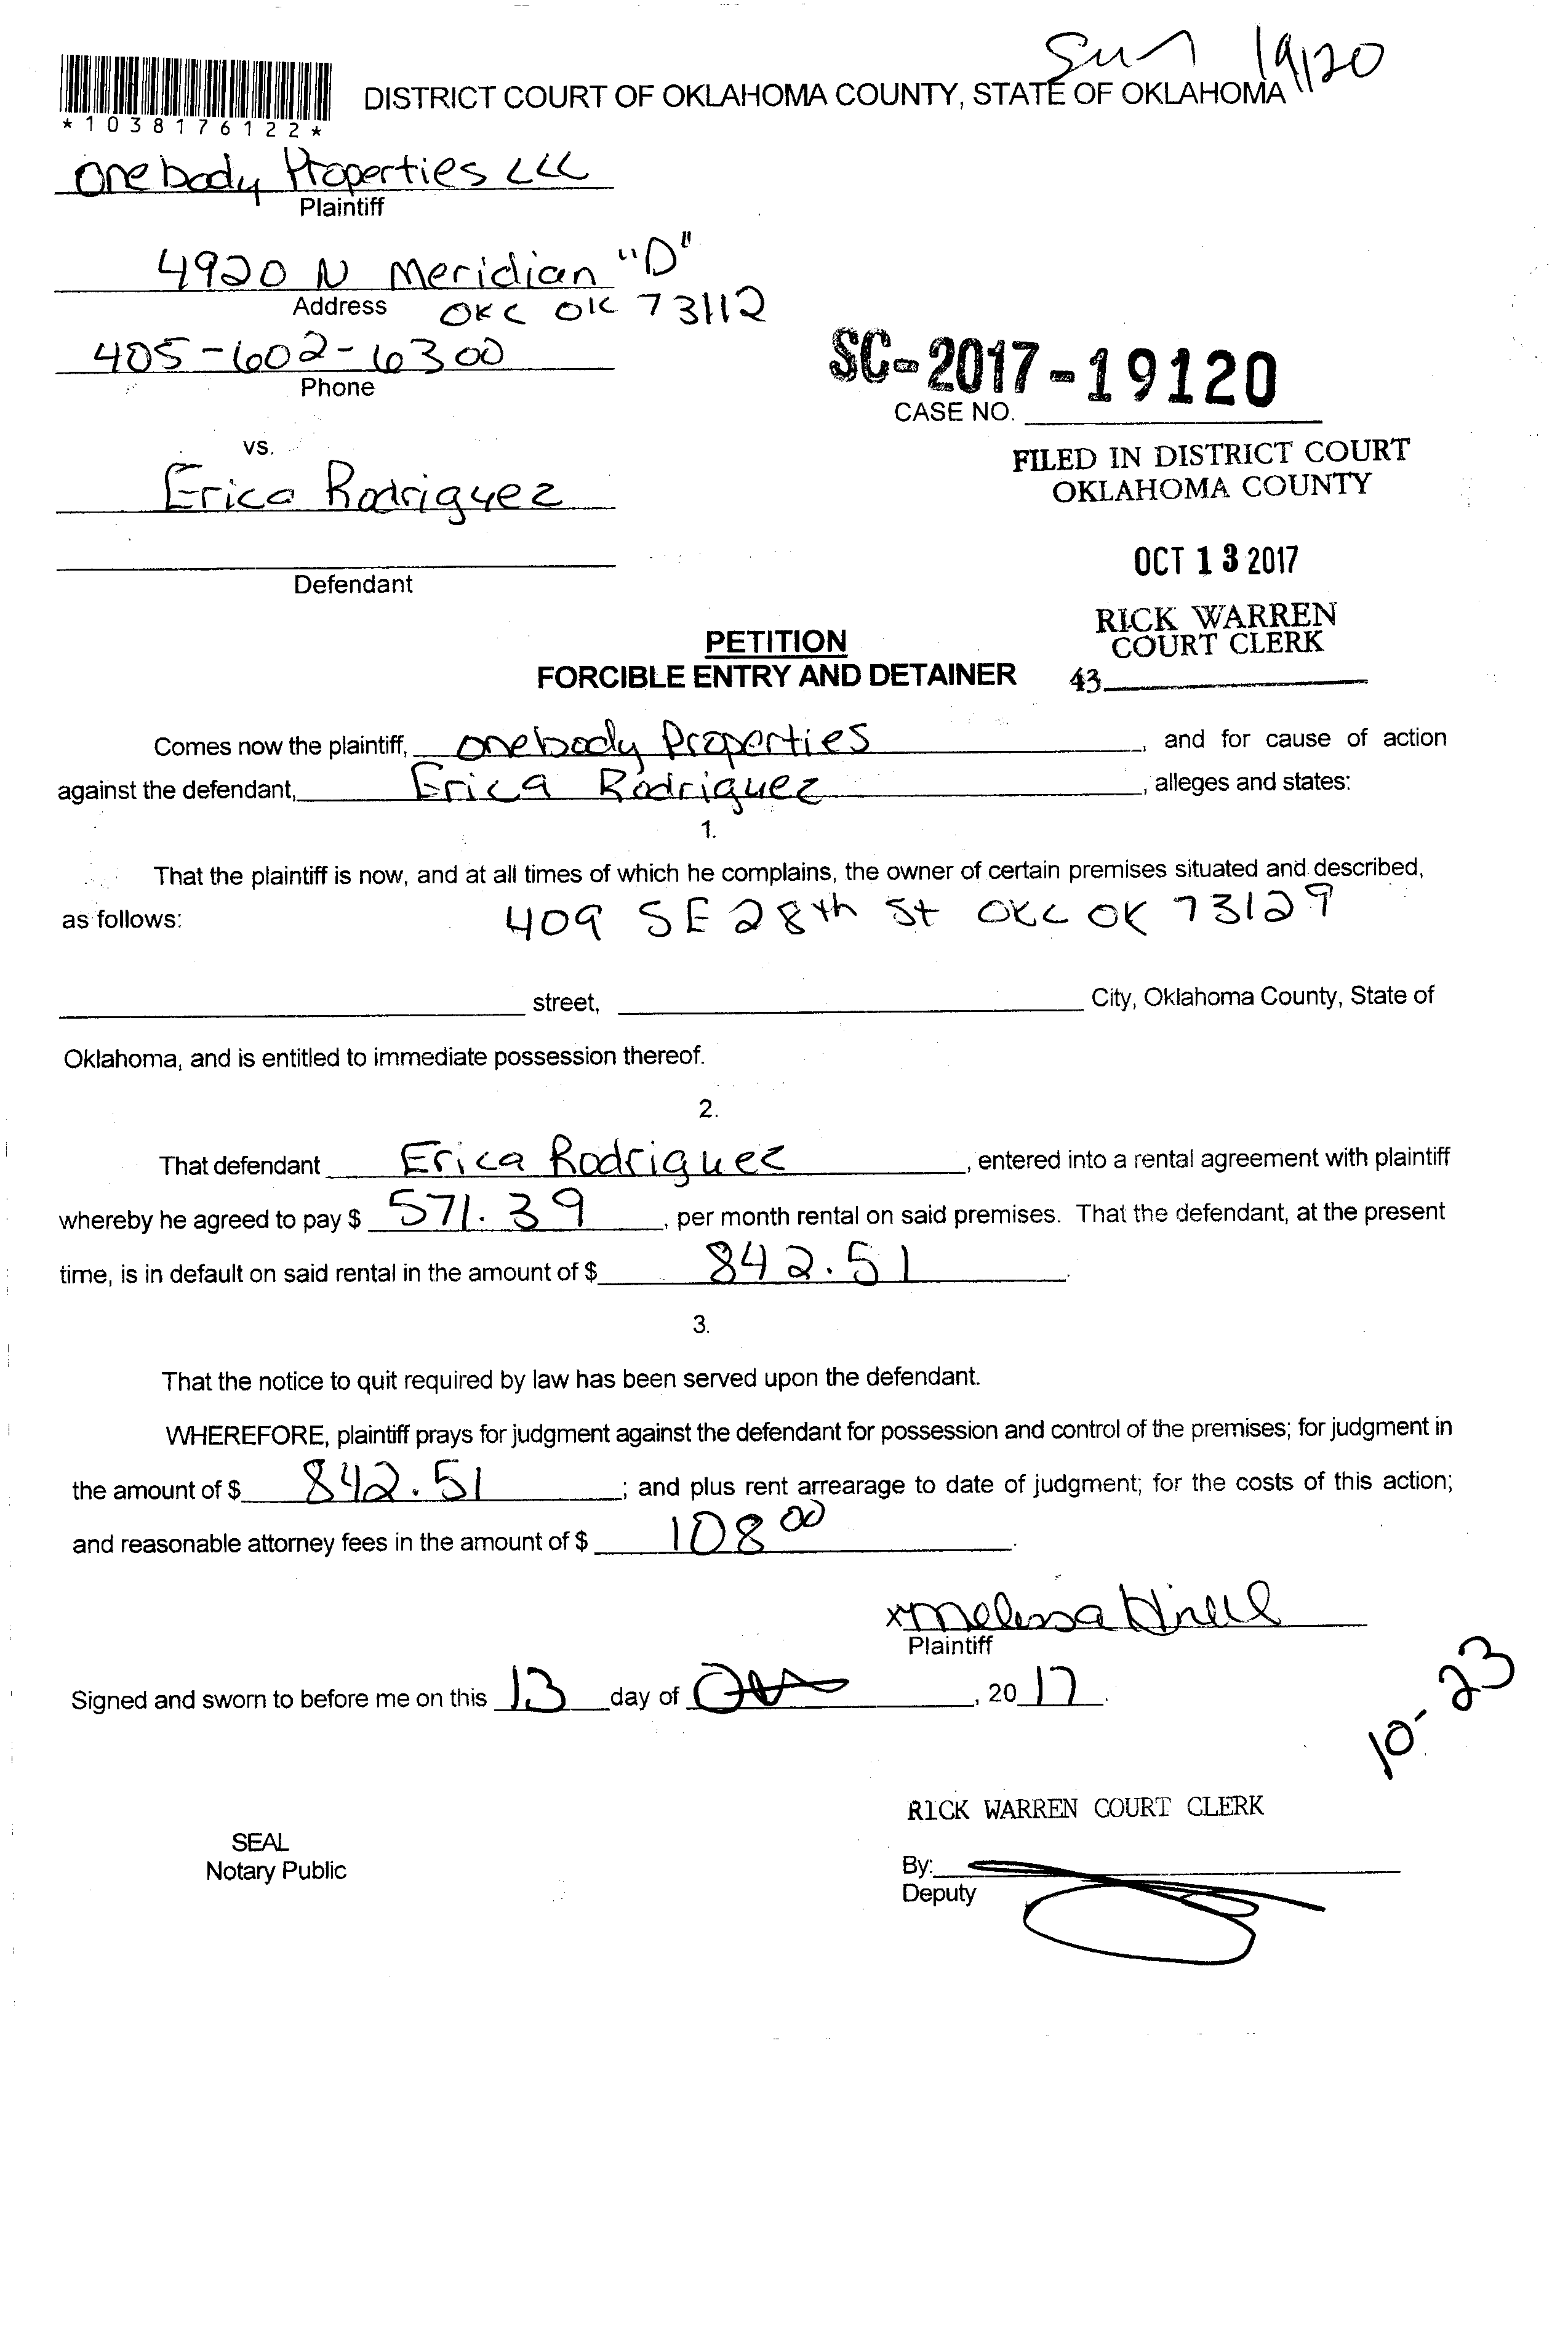 19120
*1038176122*
DISTRICT COURT OF OKLAHOMA COUNTY, STATE OF OKLAHOMA
One body Properties LLC
Plaintiff
4920 N Meridian "D"
Address OKC OK 73112
405-602-6300
Phone
SC-2017-19120
CASE NO.
vs.
Erica Rodriguez
FILED IN DISTRICT COURT
OKLAHOMA COUNTY
OCT 13 2017
Defendant
RICK WARREN
COURT CLERK
43
PETITION
FORCIBLE ENTRY AND DETAINER
Comes now the plaintiff, onebody Properties, and for cause of action
against the defendant, Erica Rodriguez, alleges and states:
1.
That the plaintiff is now, and at all times of which he complains, the owner of certain premises situated and described,
as follows: 409 SE 28th St OKC OK 73129
street, City, Oklahoma County, State of
Oklahoma, and is entitled to immediate possession thereof.
2.
That defendant Erica Rodriguez, entered into a rental agreement with plaintiff
whereby he agreed to pay $ 571.39, per month rental on said premises. That the defendant, at the present
time, is in default on said rental in the amount of $ 842.51.
3.
That the notice to quit required by law has been served upon the defendant.
WHEREFORE, plaintiff prays for judgment against the defendant for possession and control of the premises; for judgment in
the amount of $ 842.51; and plus rent arrearage to date of judgment; for the costs of this action;
and reasonable attorney fees in the amount of $ 108 00.
x Melissa
Plaintiff
Signed and sworn to before me on this 13 day of , 20 17.
10-23
RICK WARREN COURT CLERK
SEAL
Notary Public
By:
Deputy